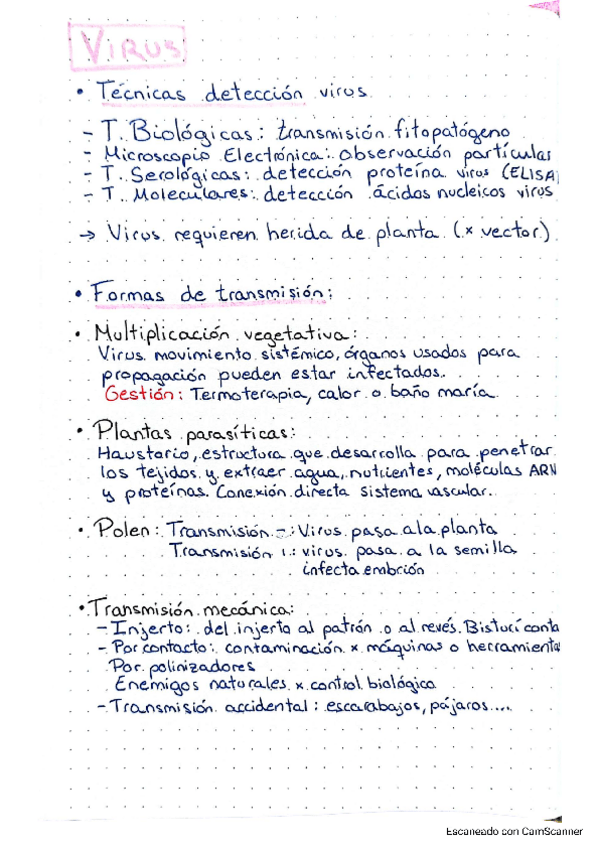 VIRUS
• Técnicas detección virus
- T. Biológicas: transmisión fitopatógeno
- Microscopio Electrónica: observación partículas
- T. Serológicas: detección proteína virus (ELISA)
- T. Moleculares: detección ácidos nucleicos virus
→ Virus requieren herida de planta (x vector).
• Formas de transmisión:
• Multiplicación vegetativa:
Virus movimiento sistémico, órganos usados para
propagación pueden estar infectados.
Gestión: Termoterapia, calor o baño maría.
• Plantas parasíticas:
Haustorio, estructura que desarrolla para penetrar
los tejidos y extraer agua, nutrientes, moléculas ARN
y proteínas. Conexión directa sistema vascular.
• Polen: Transmisión -: Virus pasa a la planta
Transmisión : virus pasa a la semilla
infecta embrión
• Transmisión mecánica:
- Injerto: del injerto al patrón o al revés. Bisturí conta
- Por contacto: contaminación x máquinas o herramienta
Por polinizadores
Enemigos naturales x control biológico
- Transmisión accidental: escarabajos, pájaros....
Escaneado con CamScanner